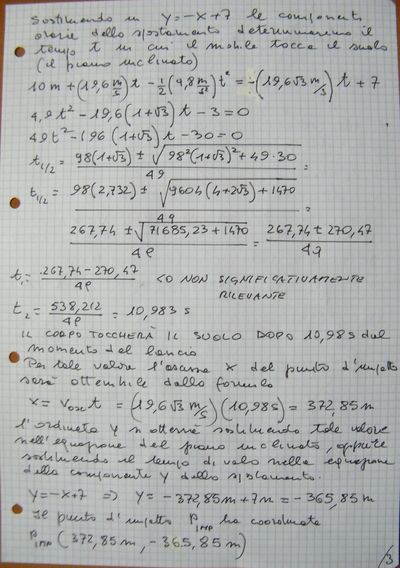 Sostituendo in y=-x+7 le componenti
orarie dello spostamento determineremo il
tempo t in cui il mobile tocca il suolo
(il piano inclinato)
10m+(19,6 m/s)t-1/2(9,8 m/s²)t²=-(19,6√3 m/s)t+7
4,9t²-19,6(1+√3)t-3=0
49t²-196(1+√3)t-30=0
t1/2=98(1+√3)±√98²(1+√3)²+49·30/49=
t1/2=98(2,732)±√9604(4+2√3)+1470/49=
267,74±√71685,23+1470/49=267,74±270,47/49
t1=267,74-270,47/49<0 NON SIGNIFICATIVAMENTE
RILEVANTE
t2=538,212/49=10,983 s
IL CORPO TOCCHERÀ IL SUOLO DOPO 10,98s dal
momento del lancio
Per tale valore l'ascissa x del punto d'impatto
sarà ottenibile dalla formula
x=v0x t=(19,6√3 m/s)(10,98s)=372,85m
l'ordinata y si otterrà sostituendo tale valore
nell'equazione del piano inclinato, oppure
sostituendo il tempo di volo nella equazione
della componente y dello spostamento.
y=-x+7 => y=-372,85m+7m=-365,85m
Il punto d'impatto PIMP ha coordinate
PIMP(372,85m,-365,85m)
/3